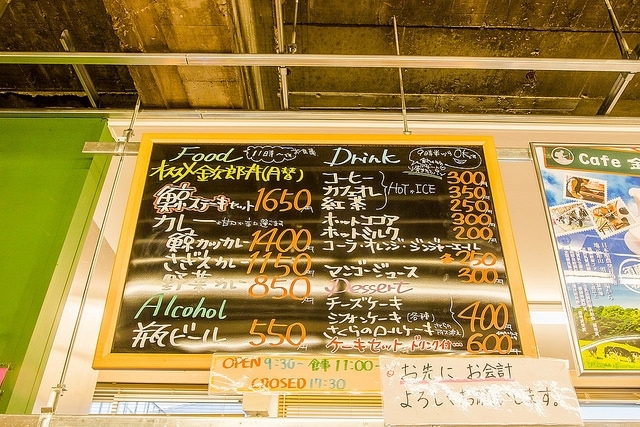 Food 11時〜
オススメ 金次郎丼(月替)
鯨ステーキセット 1650円
カレー
鯨カツカレー 1400円
さざえカレー 1150円
野菜カレー 850円
Alcohol
瓶ビール 550円
Drink
OK
コーヒー 300円
カフェオレ HOT or ICE 350円
紅茶 250円
ホットココア 300円
ホットミルク 200円
コーラ・オレンジ・ジンジャーエール
各250
マンゴージュース 300円
Dessert
チーズケーキ
シフォンケーキ(各種) 400円
さくらのロールケーキ
ケーキセット ドリンク付… 600円
OPEN 9:30- 食事 11:00-
CROSED 17:30
お先に お会計
よろしくおねがいします。
Cafe 金